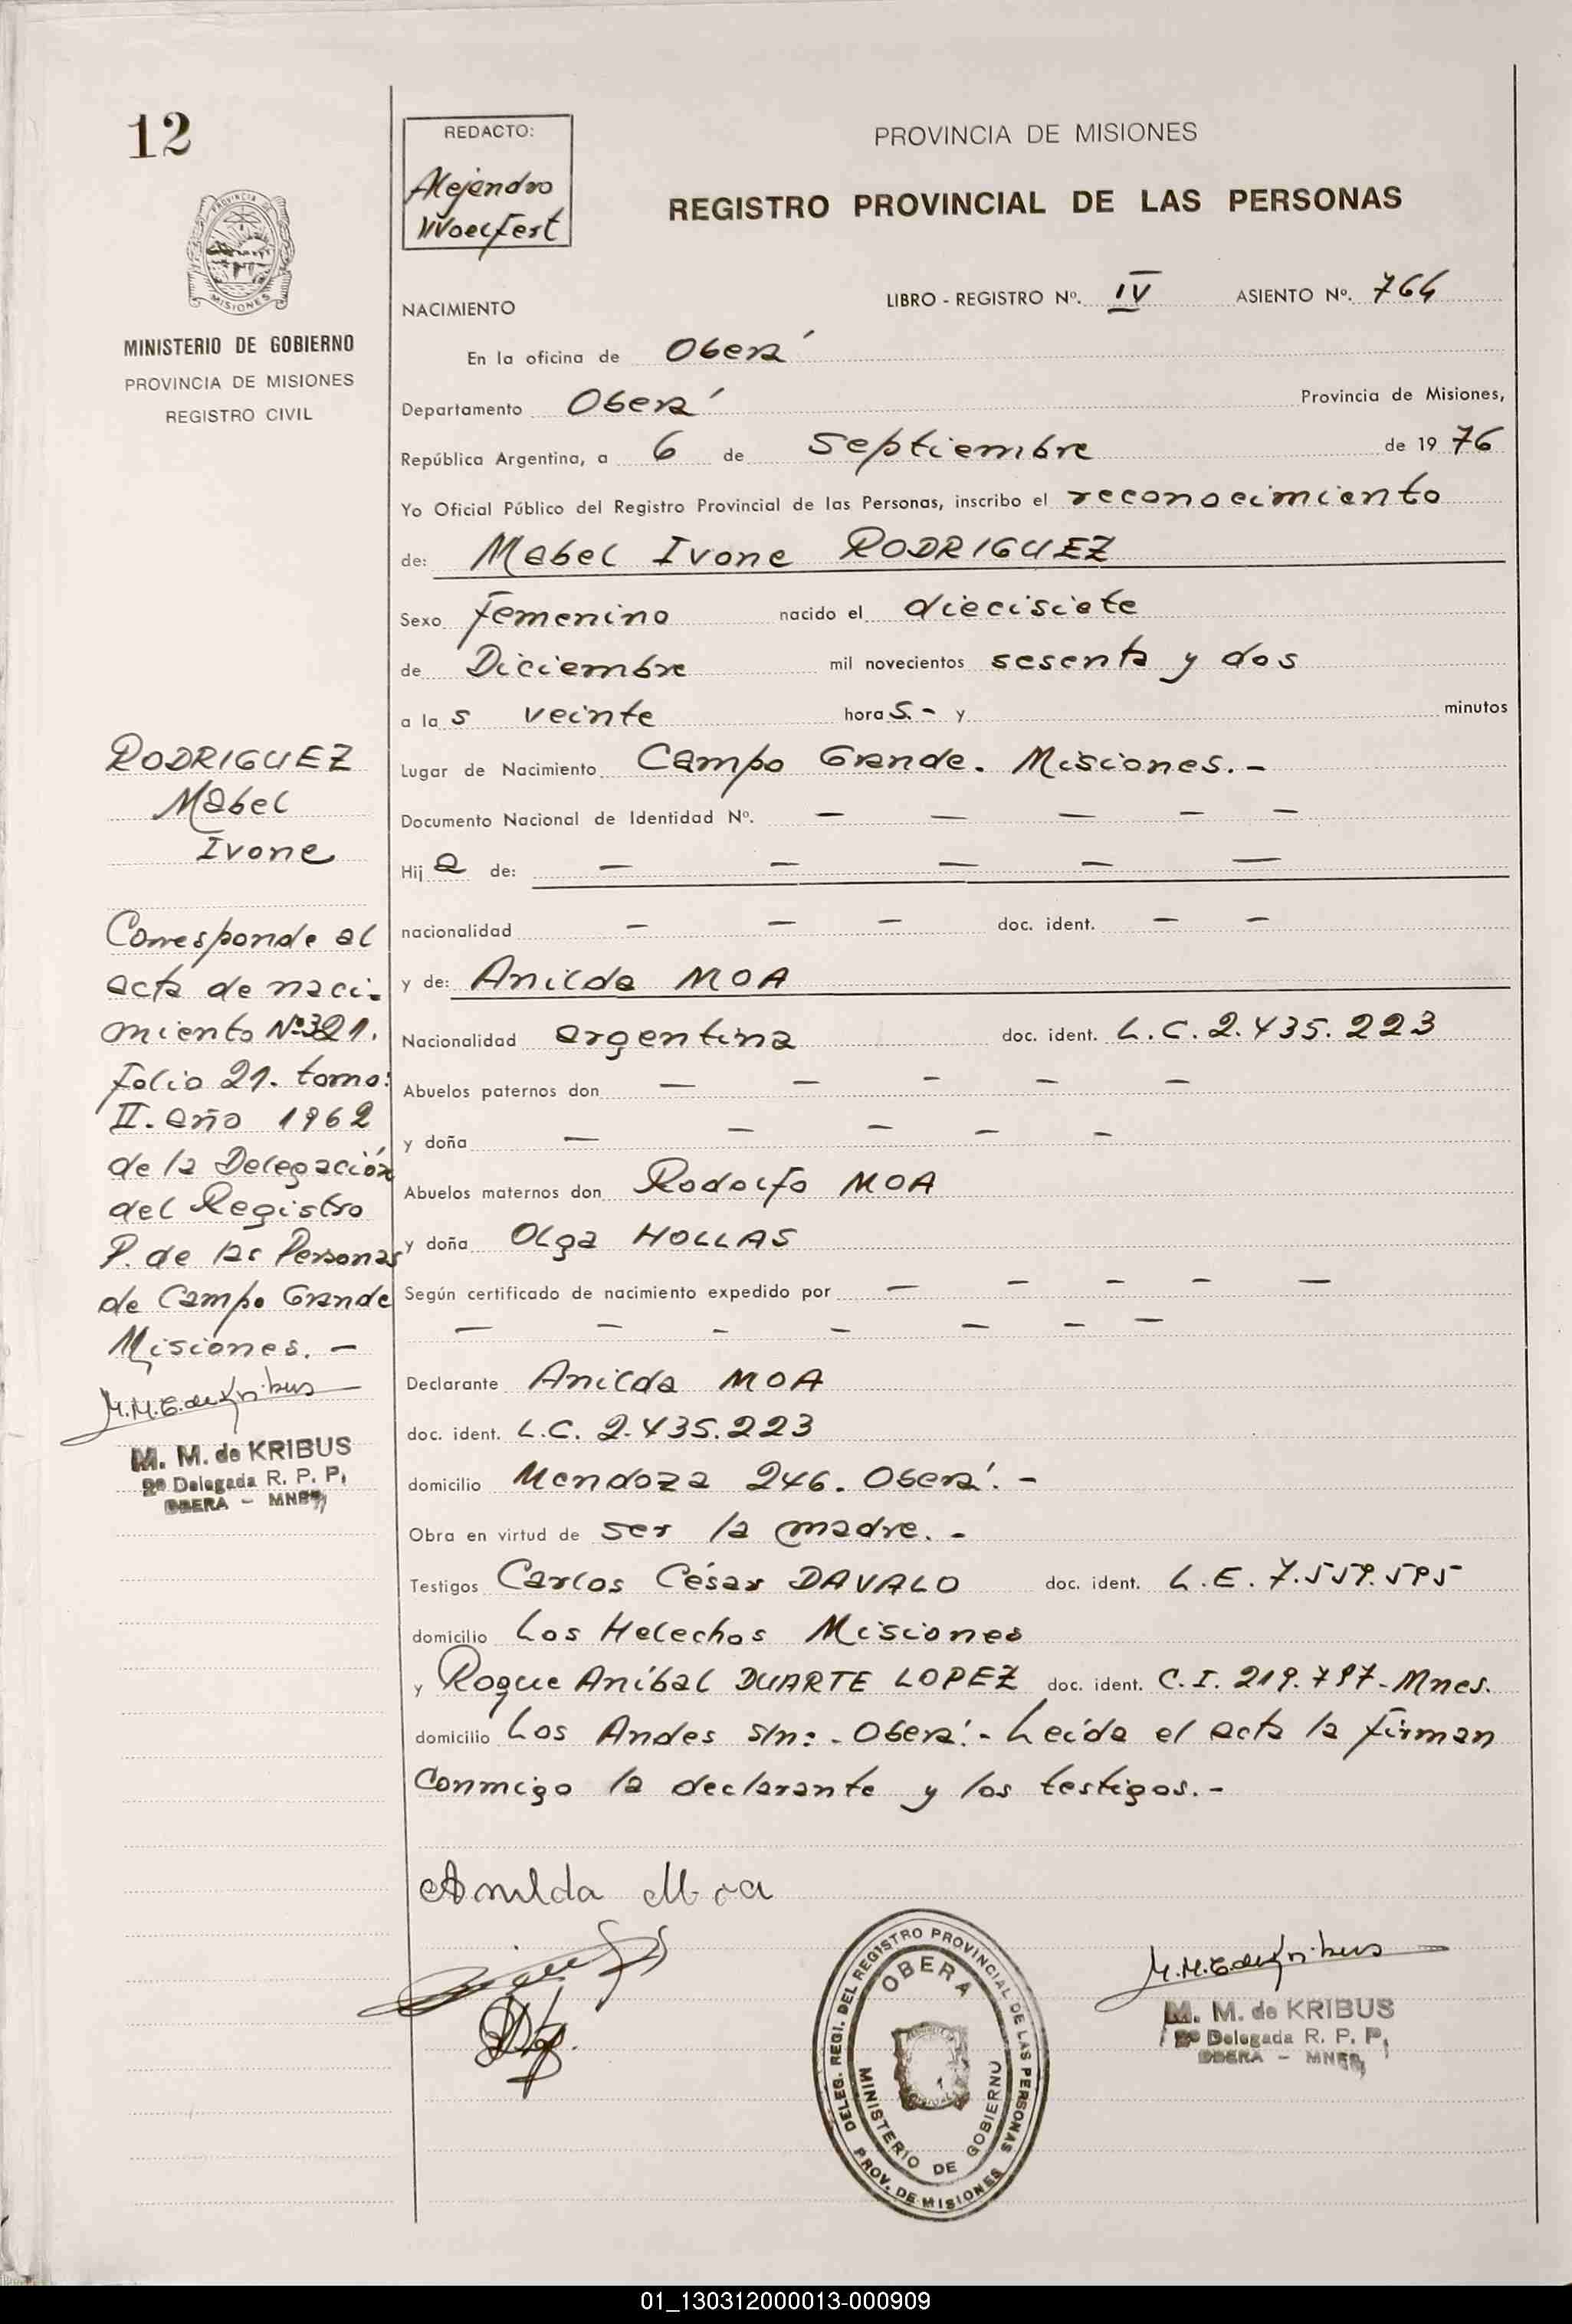 12
REDACTO:
Alejandro
Woelfert
PROVINCIA DE MISIONES
REGISTRO PROVINCIAL DE LAS PERSONAS
PROVINCIA DE
MISIONES
MINISTERIO DE GOBIERNO
PROVINCIA DE MISIONES
REGISTRO CIVIL
NACIMIENTO
LIBRO - REGISTRO Nº. IV ASIENTO Nº. 764
En la oficina de Oberá
Departamento Oberá Provincia de Misiones,
República Argentina, a 6 de Septiembre de 19 76
Yo Oficial Público del Registro Provincial de las Personas, inscribo el reconocimiento
de: Mabel Ivone RODRIGUEZ
Sexo Femenino nacido el diecisiete
de Diciembre mil novecientos sesenta y dos
a las veinte horas.- y minutos
Lugar de Nacimiento Campo Grande. Misiones.-
Documento Nacional de Identidad Nº. — — — — —
Hija de: — — — — —
nacionalidad — — — doc. ident. — —
y de: Anilda MOA
Nacionalidad argentina doc. ident. L.C. 2.435.223
Abuelos paternos don — — — — —
y doña — — — — —
Abuelos maternos don Rodolfo MOA
y doña Olga HOLLAS
Según certificado de nacimiento expedido por — — — — —
— — — — — — —
Declarante Anilda MOA
doc. ident. L.C. 2.435.223
domicilio Mendoza 246. Oberá.-
Obra en virtud de ser la madre.-
Testigos Carlos César DAVALO doc. ident. L.E. 7.559.595
domicilio Los Helechos Misiones
y Roque Aníbal DUARTE LOPEZ doc. ident. C.I. 219.797-Mnes.
domicilio Los Andes s/n:-Oberá.- Leída el acta la firman
conmigo la declarante y los testigos.-
RODRIGUEZ
Mabel
Ivone
Corresponde al
acta de naci-
miento Nº321.
folio 21. tomo:
II. año 1962
de la Delegación
del Registro
P. de las Personas
de Campo Grande
Misiones.-
M.M.E. de Kribus
M. M. de KRIBUS
2º Delegada R. P. P.
OBERA - MNES
Anilda Moa
DELEG. REGI. DEL REGISTRO PROVINCIAL DE LAS PERSONAS
OBERA
MINISTERIO DE GOBIERNO
PROV. DE MISIONES
M.M.E. de Kribus
M. M. de KRIBUS
2º Delegada R. P. P.
OBERA - MNES
01_130312000013-000909